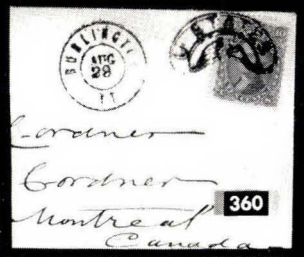 BURLINGTO
AUG
28
VT
U. STATES
Cordner
Cordner
360
Montreal
Canada